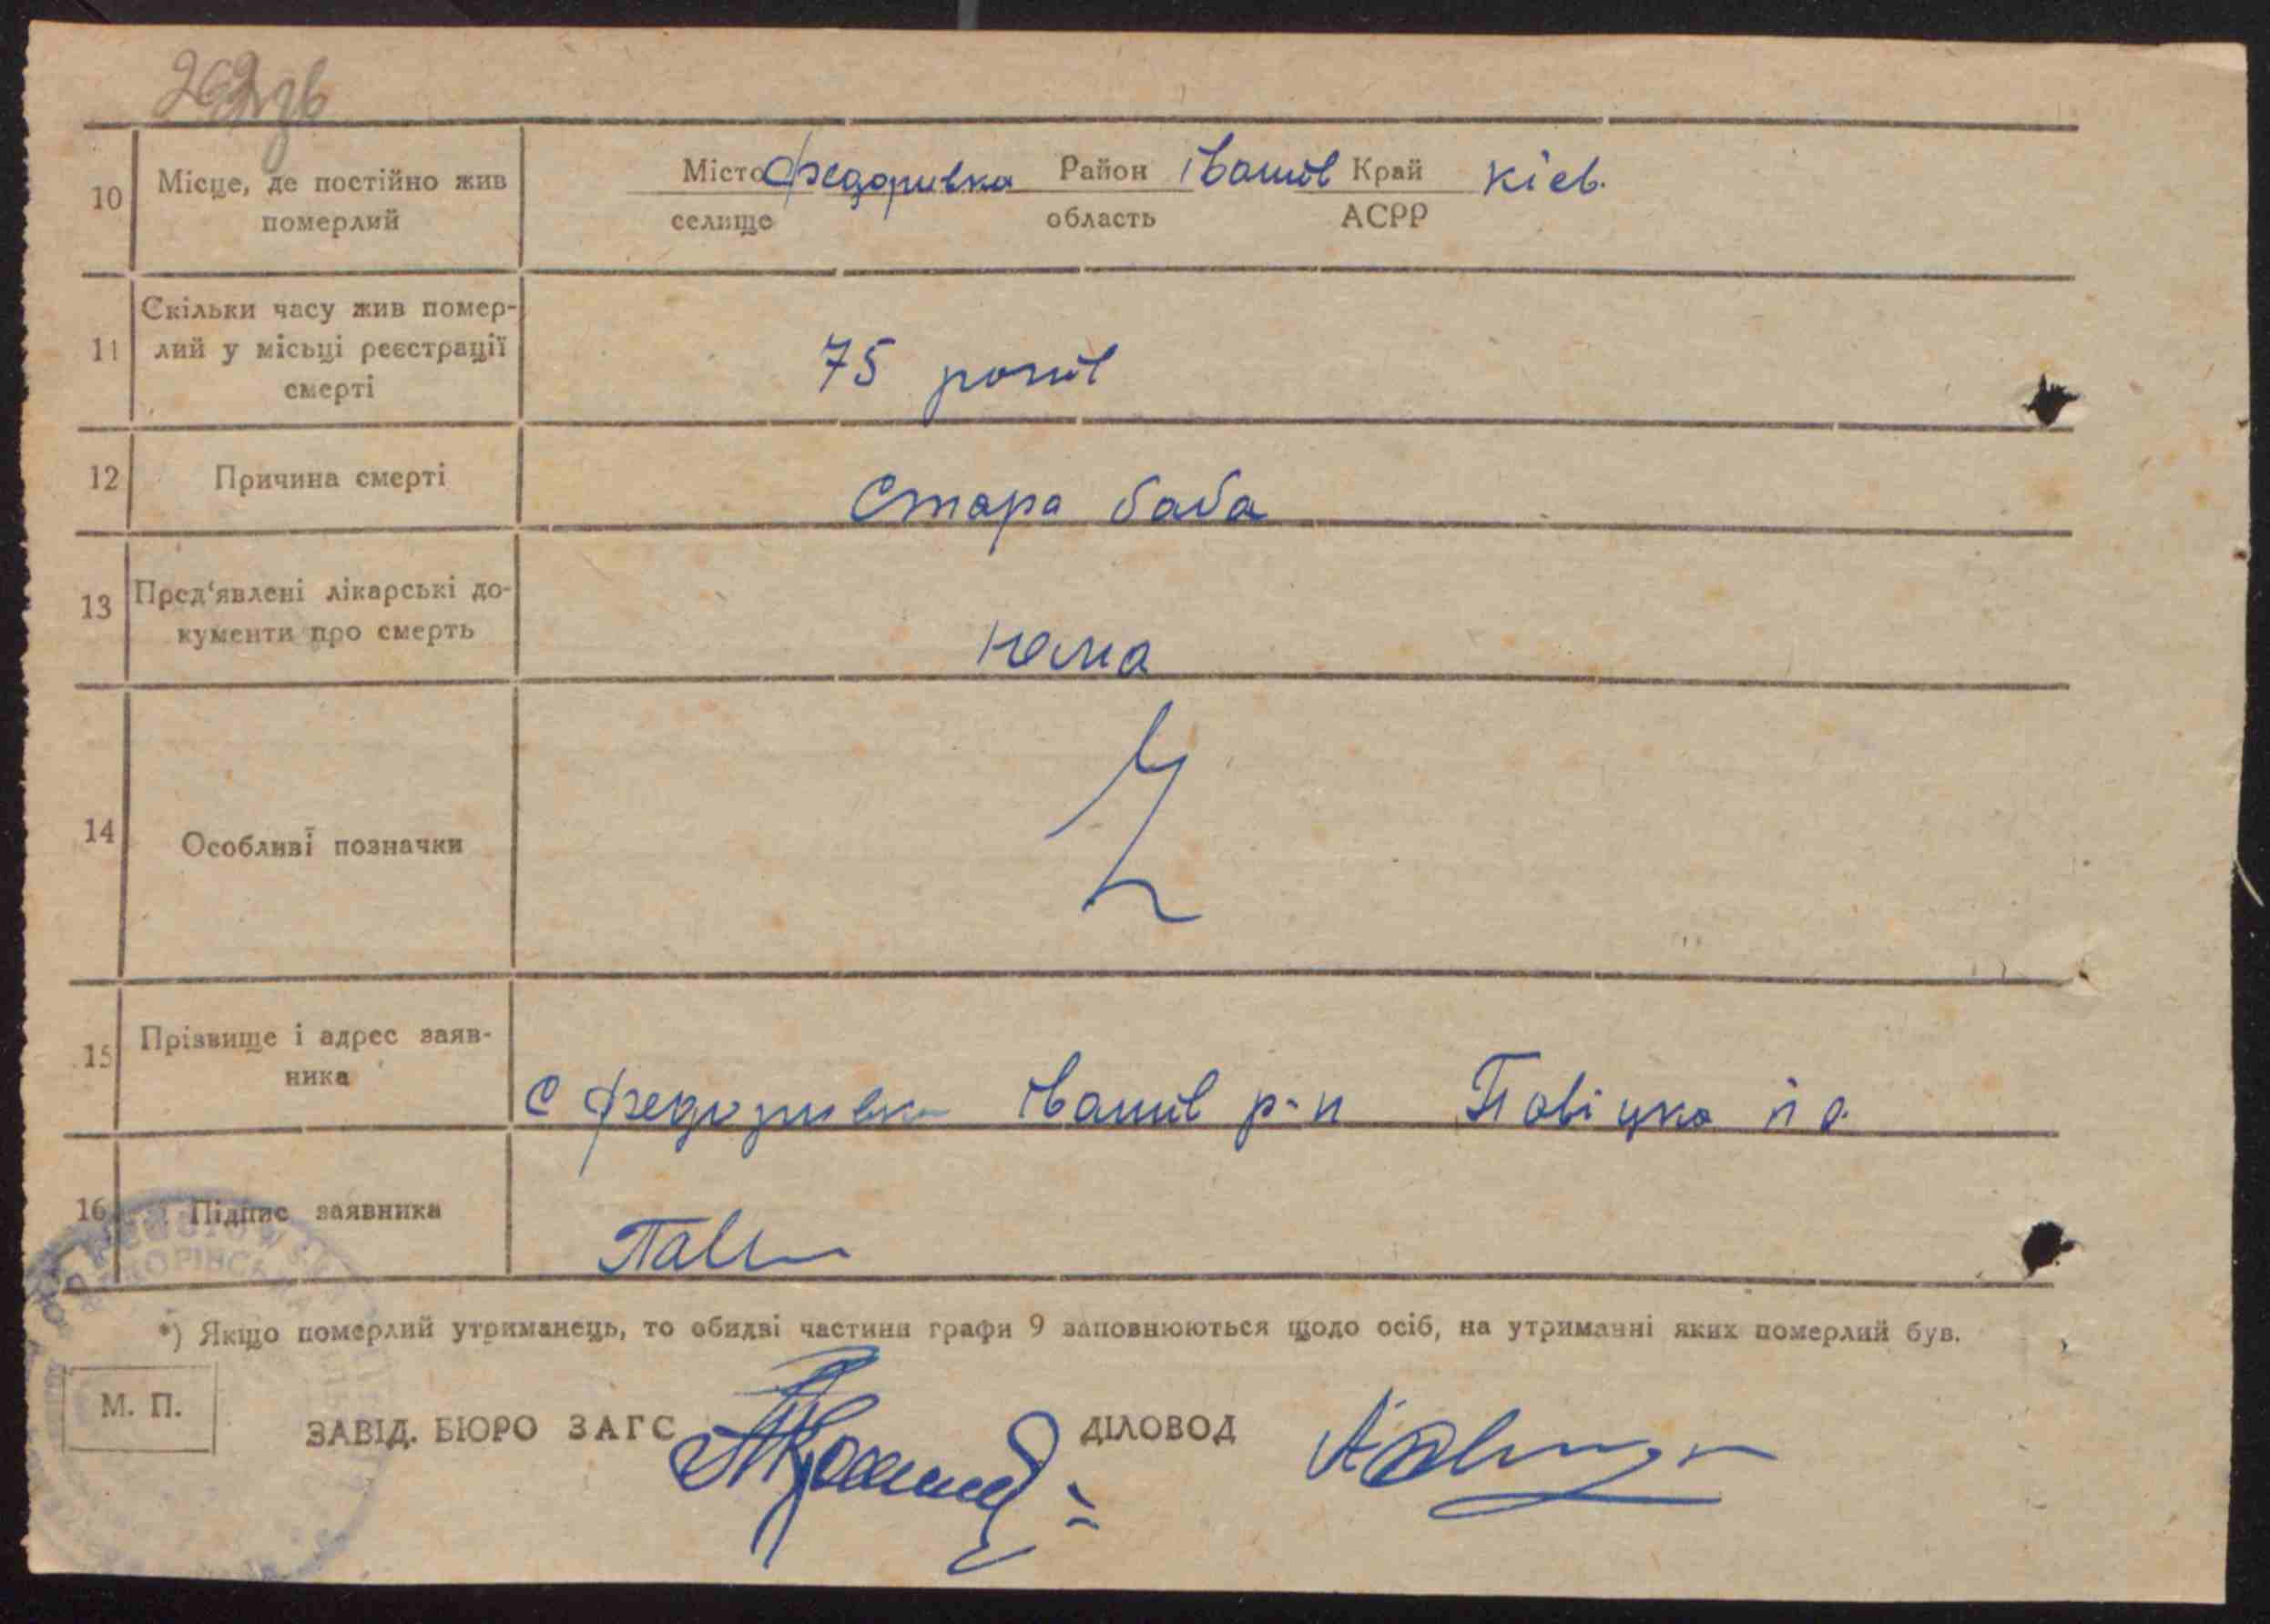 10 Місце, де постійно жив померлий
Місто Федоривка Район Іванків Край Кіев.
селище область АСРР
11 Скільки часу жив помер-
лий у місьці реєстрації
смерті
75 років
12 Причина смерті
Стара баба
13 Пред‘явлені лікарські до-
кументи про смерть
нема
14 Особливі позначки
15 Прізвище і адрес заяв-
ника
с Федоривка Іванків р-н
16 Підпис заявника
*) Якщо померлий утриманець, то обидві частини графи 9 заповнюються щодо осіб, на утриманні яких померлий був.
М. П.
ЗАВІД. БЮРО ЗАГС ДІЛОВОД